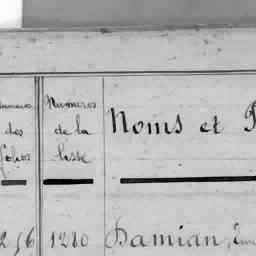 Numéros
des
folios
Numéros
de la
liste
Noms et
256 1280 Damian,